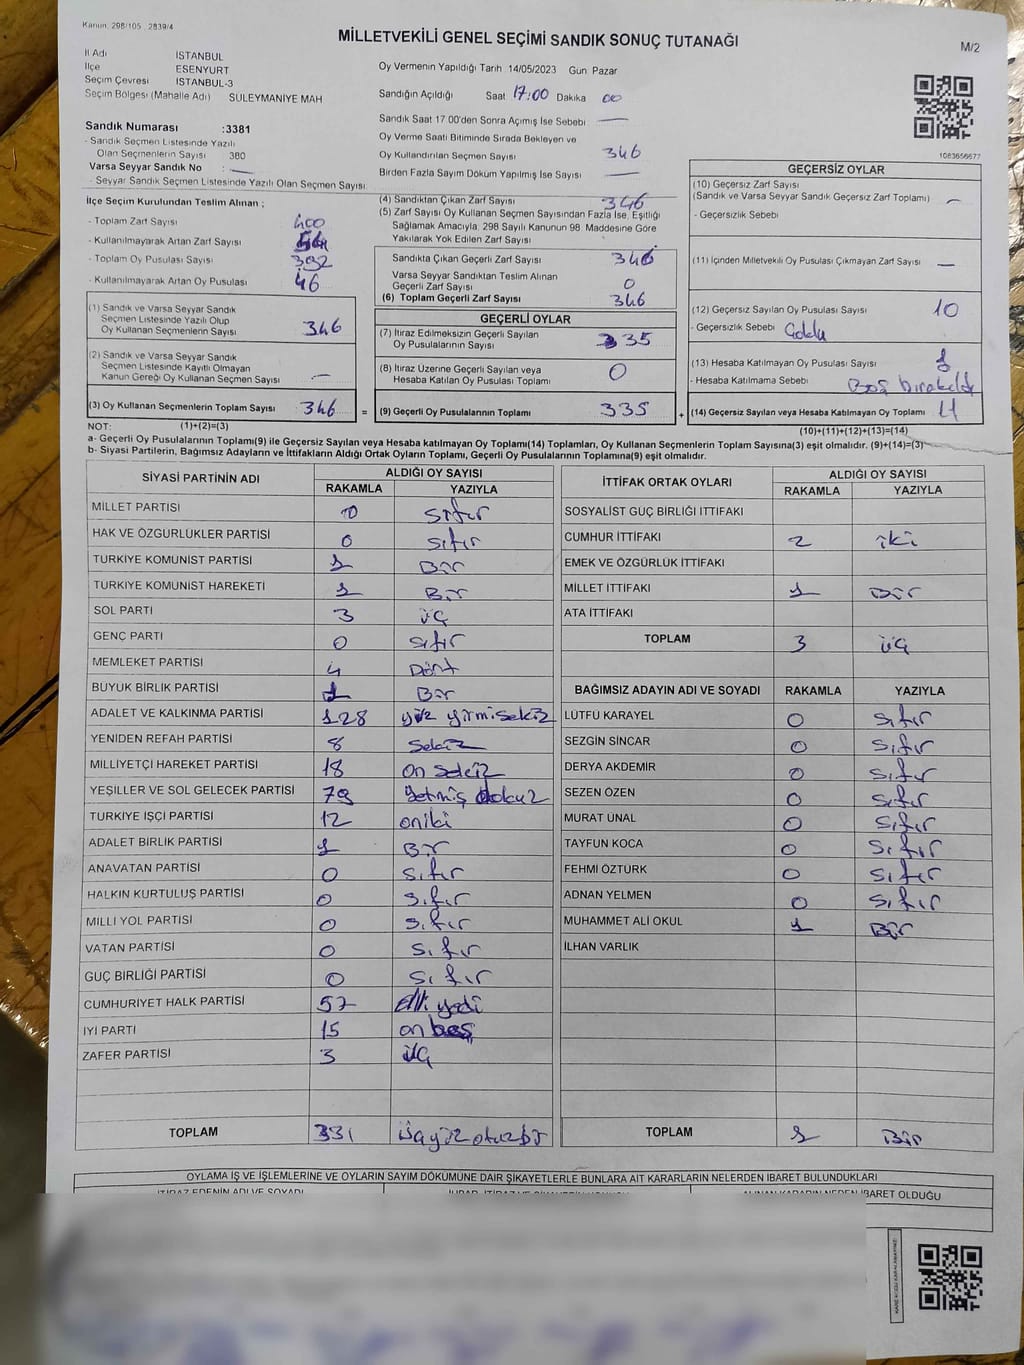 Kanun: 298/105 , 2839/4
MİLLETVEKİLİ GENEL SEÇİMİ SANDIK SONUÇ TUTANAĞI
M/2
İl Adı İSTANBUL
İlçe ESENYURT
Seçim Çevresi İSTANBUL-3
Seçim Bölgesi (Mahalle Adı) SÜLEYMANİYE MAH
Oy Vermenin Yapıldığı Tarih 14/05/2023 Gün Pazar
Sandığın Açıldığı Saat 17:00 Dakika 00
Sandık Saat 17.00'den Sonra Açımış İse Sebebi
Oy Verme Saati Bitiminde Sırada Bekleyen ve
Oy Kullandırılan Seçmen Sayısı 346
Birden Fazla Sayım Döküm Yapılmış İse Sayısı
Sandık Numarası :3381
- Sandık Seçmen Listesinde Yazılı
Olan Seçmenlerin Sayısı 380
Varsa Seyyar Sandık No :
- Seyyar Sandık Seçmen Listesinde Yazılı Olan Seçmen Sayısı
1083656677
İlçe Seçim Kurulundan Teslim Alınan ;
- Toplam Zarf Sayısı 400
- Kullanılmayarak Artan Zarf Sayısı 54
- Toplam Oy Pusulası Sayısı 392
- Kullanılmayarak Artan Oy Pusulası 46
(1) Sandık ve Varsa Seyyar Sandık
Seçmen Listesinde Yazılı Olup
Oy Kullanan Seçmenlerin Sayısı 346
(2) Sandık ve Varsa Seyyar Sandık
Seçmen Listesinde Kayıtlı Olmayan
Kanun Gereği Oy Kullanan Seçmen Sayısı —
(3) Oy Kullanan Seçmenlerin Toplam Sayısı 346 =
(1)+(2)=(3)
(4) Sandıktan Çıkan Zarf Sayısı 346
(5) Zarf Sayısı Oy Kullanan Seçmen Sayısından Fazla İse, Eşitliği
Sağlamak Amacıyla; 298 Sayılı Kanunun 98. Maddesine Göre
Yakılarak Yok Edilen Zarf Sayısı
Sandıkta Çıkan Geçerli Zarf Sayısı 346
Varsa Seyyar Sandıktan Teslim Alınan
Geçerli Zarf Sayısı 0
(6) Toplam Geçerli Zarf Sayısı 346
GEÇERLİ OYLAR
(7) İtiraz Edilmeksizin Geçerli Sayılan
Oy Pusulalarının Sayısı 335
(8) İtiraz Üzerine Geçerli Sayılan veya
Hesaba Katılan Oy Pusulası Toplamı 0
(9) Geçerli Oy Pusulalarının Toplamı 335 +
GEÇERSİZ OYLAR
(10) Geçersiz Zarf Sayısı
(Sandık ve Varsa Seyyar Sandık Geçersiz Zarf Toplamı) —
- Geçersizlik Sebebi
(11) İçinden Milletvekili Oy Pusulası Çıkmayan Zarf Sayısı —
(12) Geçersiz Sayılan Oy Pusulası Sayısı 10
- Geçersizlik Sebebi
(13) Hesaba Katılmayan Oy Pusulası Sayısı 1
- Hesaba Katılmama Sebebi Boş bırakıldı
(14) Geçersiz Sayılan veya Hesaba Katılmayan Oy Toplamı 11
(10)+(11)+(12)+(13)=(14)
NOT:
a- Geçerli Oy Pusulalarının Toplamı(9) ile Geçersiz Sayılan veya Hesaba katılmayan Oy Toplamı(14) Toplamları, Oy Kullanan Seçmenlerin Toplam Sayısına(3) eşit olmalıdır. (9)+(14)=(3)
b- Siyasi Partilerin, Bağımsız Adayların ve İttifakların Aldığı Ortak Oyların Toplamı, Geçerli Oy Pusulalarının Toplamına(9) eşit olmalıdır.
SİYASİ PARTİNİN ADI ALDIĞI OY SAYISI
RAKAMLA YAZIYLA
MİLLET PARTİSİ 0 sıfır
HAK VE ÖZGÜRLÜKLER PARTİSİ 0 sıfır
TÜRKİYE KOMÜNİST PARTİSİ 1 Bir
TÜRKİYE KOMÜNİST HAREKETİ 1 Bir
SOL PARTİ 3 üç
GENÇ PARTİ 0 sıfır
MEMLEKET PARTİSİ 4 Dört
BÜYÜK BİRLİK PARTİSİ 1 Bir
ADALET VE KALKINMA PARTİSİ 128 yüz yirmisekiz
YENİDEN REFAH PARTİSİ 8 Sekiz
MİLLİYETÇİ HAREKET PARTİSİ 18 on sekiz
YEŞİLLER VE SOL GELECEK PARTİSİ 79 Yetmiş dokuz
TÜRKİYE İŞÇİ PARTİSİ 12 oniki
ADALET BİRLİK PARTİSİ 1 Bir
ANAVATAN PARTİSİ 0 sıfır
HALKIN KURTULUŞ PARTİSİ 0 sıfır
MİLLİ YOL PARTİSİ 0 sıfır
VATAN PARTİSİ 0 sıfır
GÜÇ BİRLİĞİ PARTİSİ 0 sıfır
CUMHURİYET HALK PARTİSİ 57 elli yedi
İYİ PARTİ 15 on beş
ZAFER PARTİSİ 3 üç
TOPLAM 331 üçyüz otuzbir
İTTİFAK ORTAK OYLARI ALDIĞI OY SAYISI
RAKAMLA YAZIYLA
SOSYALİST GÜÇ BİRLİĞİ İTTİFAKI
CUMHUR İTTİFAKI 2 iki
EMEK VE ÖZGÜRLÜK İTTİFAKI
MİLLET İTTİFAKI 1 Bir
ATA İTTİFAKI
TOPLAM 3 üç
BAĞIMSIZ ADAYIN ADI VE SOYADI RAKAMLA YAZIYLA
LÜTFÜ KARAYEL 0 sıfır
SEZGİN SİNCAR 0 sıfır
DERYA AKDEMİR 0 sıfır
SEZEN ÖZEN 0 sıfır
MURAT ÜNAL 0 sıfır
TAYFUN KOCA 0 sıfır
FEHMİ ÖZTÜRK 0 sıfır
ADNAN YELMEN 0 sıfır
MUHAMMET ALİ OKUL 1 Bir
İLHAN VARLIK
TOPLAM 1 Bir
OYLAMA İŞ VE İŞLEMLERİNE VE OYLARIN SAYIM DÖKÜMÜNE DAİR ŞİKAYETLERLE BUNLARA AİT KARARLARIN NELERDEN İBARET BULUNDUKLARI
İTİRAZ EDENİN ADI VE SOYADI
ALINAN KARARIN NEDEN İBARET OLDUĞU